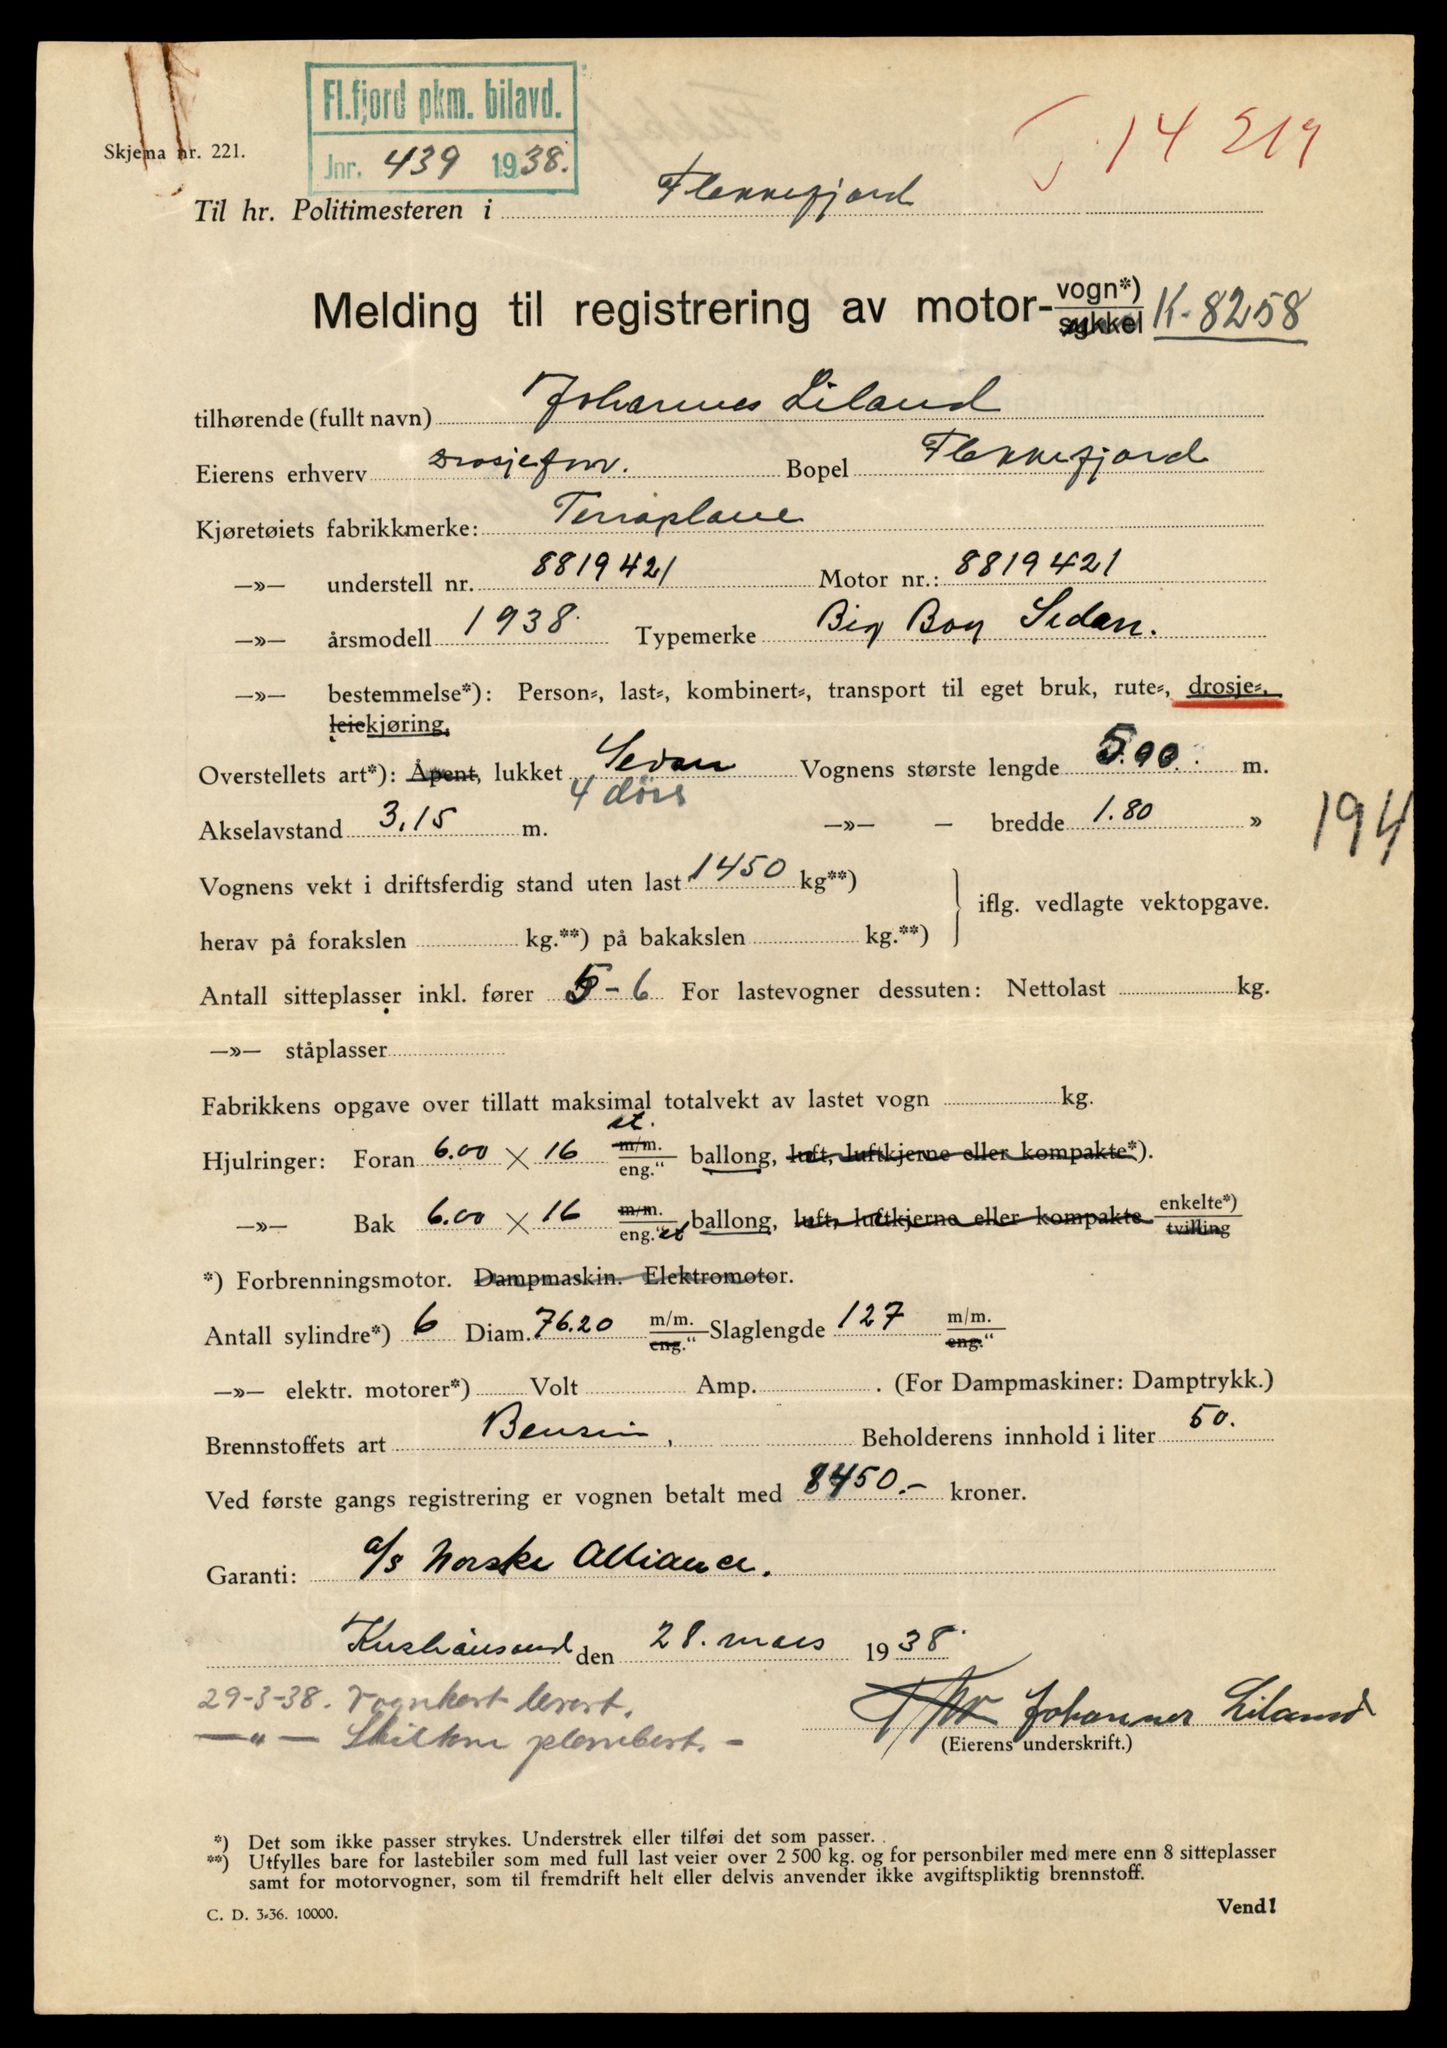 Fl.fjord pkm. bilavd.
Jnr. 439 1938.
14 219
Skjema nr. 221.
Til hr. Politimesteren i Flekkefjord
Melding til registrering av motor-vogn*) sykkel K-8258
tilhørende (fullt navn) Johannes Liland
Eierens erhverv Drosjeforr. Bopel Flekkefjord
Kjøretøiets fabrikkmerke: Terraplane
—»— understell nr. 8819421 Motor nr.: 8819421
—»— årsmodell 1938. Typemerke Big Boy Sedan.
—»— bestemmelse*): Person-, last-, kombinert-, transport til eget bruk, rute-, drosje-,
leiekjøring.
Overstellets art*): Åpent, lukket Sedan Vognens største lengde 5.00. m.
4 dørs
Akselavstand 3,15 m. —»— — bredde 1.80 »
194
Vognens vekt i driftsferdig stand uten last 1450 kg**)
iflg. vedlagte vektopgave.
herav på forakslen kg.**) på bakakslen kg.**)
Antall sitteplasser inkl. fører 5-6 For lastevogner dessuten: Nettolast kg.
—»— ståplasser
Fabrikkens opgave over tillatt maksimal totalvekt av lastet vogn kg.
Hjulringer: Foran 6.00 × 16 m/m. eng.“ st. ballong, luft, luftkjerne eller kompakte*).
—»— Bak 6.00 × 16 m/m. eng.“ st ballong, luft, luftkjerne eller kompakte enkelte*) tvilling
*) Forbrenningsmotor. Dampmaskin. Elektromotor.
Antall sylindre*) 6 Diam. 76.20 m/m. eng.“ Slaglengde 127 m/m. eng.“
—»— elektr. motorer*) Volt Amp. . (For Dampmaskiner: Damptrykk.)
Brennstoffets art Bensin, Beholderens innhold i liter 50.
Ved første gangs registrering er vognen betalt med 8450.- kroner.
Garanti: a/s Norske Alliance.
Kristiansand den 28. mars 1938.
29-3-38. Vognkort levert.
Johannes Liland
—"— Skiltene plombert. -
(Eierens underskrift.)
*) Det som ikke passer strykes. Understrek eller tilføi det som passer.
**) Utfylles bare for lastebiler som med full last veier over 2 500 kg. og for personbiler med mere enn 8 sitteplasser
samt for motorvogner, som til fremdrift helt eller delvis anvender ikke avgiftspliktig brennstoff.
C. D. 3-36. 10000.
Vend!